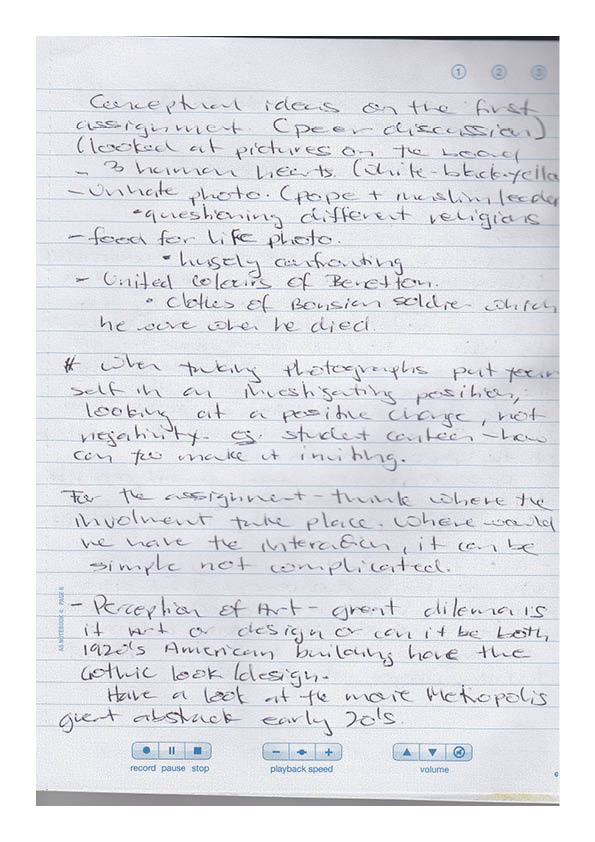 1 2 3
Conceptual ideas on the first
assignment. (peer discussion)
(looked at pictures on the board
- 3 human hearts. (white-black-yello
- Unhate photo. (pope + muslim leader
• questioning different religions
- food for life photo.
• hugely confronting
- United colours of Beretton.
• clothes of Bonsian soldier which
he wore when he died.
* when taking photographs put your
self in an investigating position,
looking at a positive change, not
negativity. eg. student canteen - how
can you make it inviting.
For the assignment - think where the
involment take place. Where would
we have the interaction, it can be
simple not complicated.
- Perception of Art - great dilema is
it art or design or can it be both,
1920's American building have the
Gothic look/design.
Have a look at the movie Metropolis
great abstack early 20's.
A5 NOTEBOOK 4: PAGE 8
record pause stop
playback speed
volume